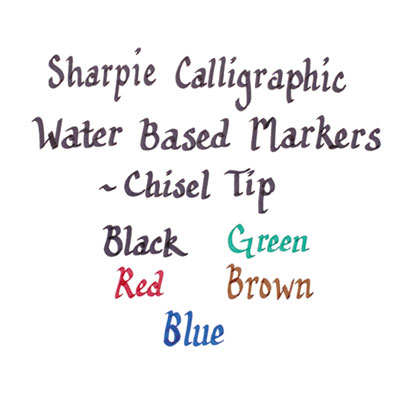 Sharpie Calligraphic
Water Based Markers
~Chisel Tip
Black Green
Red Brown
Blue